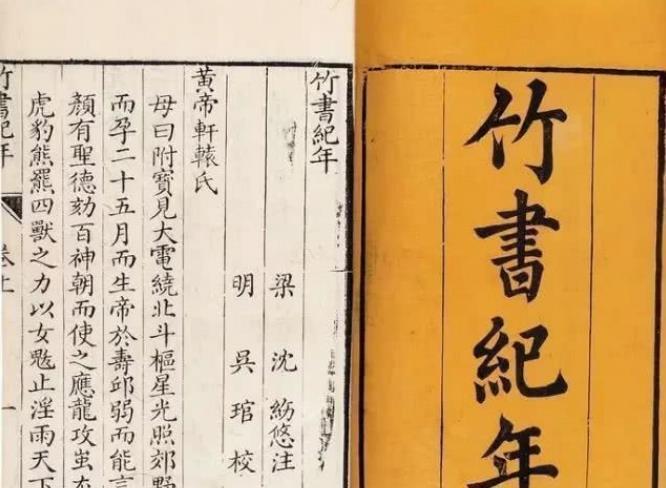 竹書紀年
竹書紀年
梁 沈約悠注
明 吳琯校
黃帝軒轅氏
母曰附寶見大電繞北斗樞星光照郊野
而孕二十五月而生帝於壽邱弱而能言
顏有聖德劾百神朝而使之應龍攻蚩尤
虎豹熊羆四獸之力以女魃止淫雨天下
竹書紀年 卷上 一